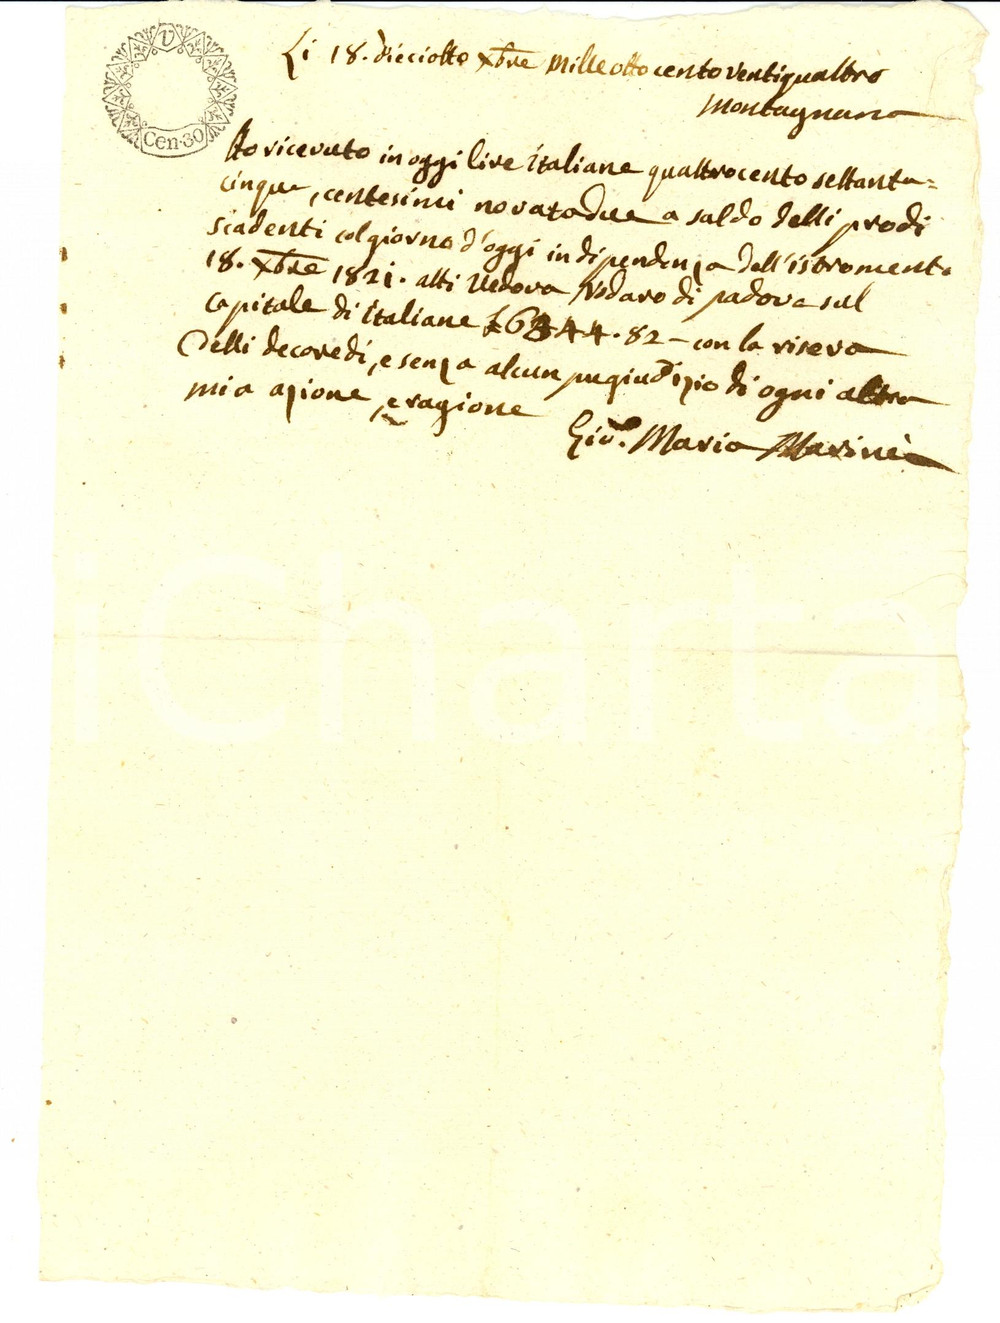 V
Cen. 30
Li 18. dieciotto Xbre Mille otto cento ventiquattro
Montagnana
Ho ricevuto in oggi lire italiane quattrocento settanta=
cinque, centesimi novatadue a saldo delli prodi
scadenti col giorno d'oggi in dipendenza dell'istromento
18. Xbre 1821. atti Vedova Nodaro di padova sul
capitale di italiane £ 6344.82 - con la riserva
delli decoredi, e senza alcun pregiudizio di ogni altra
mia azione, e ragione
Giov. Maria Marinè
iCharta